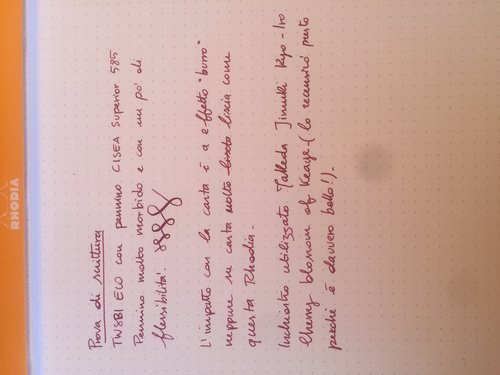 RHODIA
Prova di scrittura
TWSBI ECO con pennino CISEA Superior 585
Pennino molto morbido e con un po' di
flessibilità.
L'impatto con la carta è a effetto "burro"
neppure su carta molto liscia come
questa Rhodia.
Inchiostro utilizzato Takeda Jimuki Kyo-Iro
Cherry blossom of Keage. (lo recensirò presto
perchè è davvero bello!).